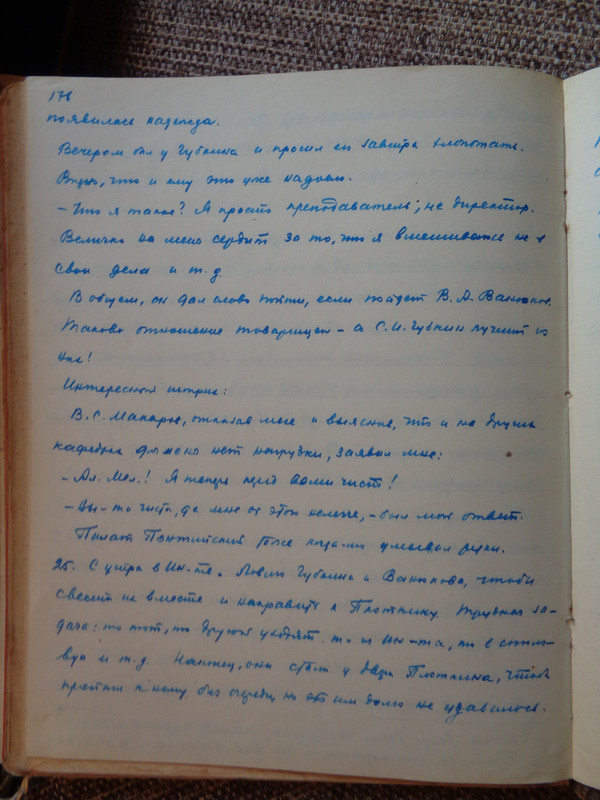 176
появилась надежда.
Вечером был у Губкина и просил его завтра хлопотать.
Вижу, что и ему это уже надоело.
– Что я такое? Я просто преподаватель, не директор.
Величко на меня сердит за то, что я вмешиваюсь не в
свои дела и т.д.
В общем, он дал слово пойти, если пойдет В. А. Ванюков.
Таково отношение товарищей – а С. И. Губкин лучший из
них!
Интересный штрих:
В. С. Макаров, отказав мне и выяснив, что и на других
кафедрах для меня нет нагрузки, заявил мне:
– Ал. Мел.! Я теперь перед Вами чист!
– Вы-то чисты, да мне от этого не легче, – был мой ответ.
Пилат Понтийский тоже когда-то умывал руки.
25. С утра в Ин-те. Ловлю Губкина и Ванюкова, чтобы
свести их вместе и направить к Плоткину. Трудная за-
дача: то тот, то другой уходят то из Ин-та, то в столо-
вую и т.д. Наконец, они стали у двери Плоткина, чтобы
пройти к нему без очереди, но это им долго не удавалось.